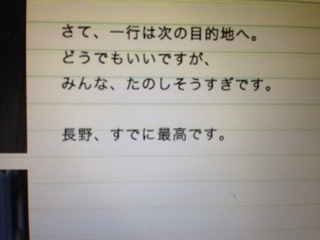 さて、一行は次の目的地へ。
どうでもいいですが、
みんな、たのしそうすぎです。
長野、すでに最高です。